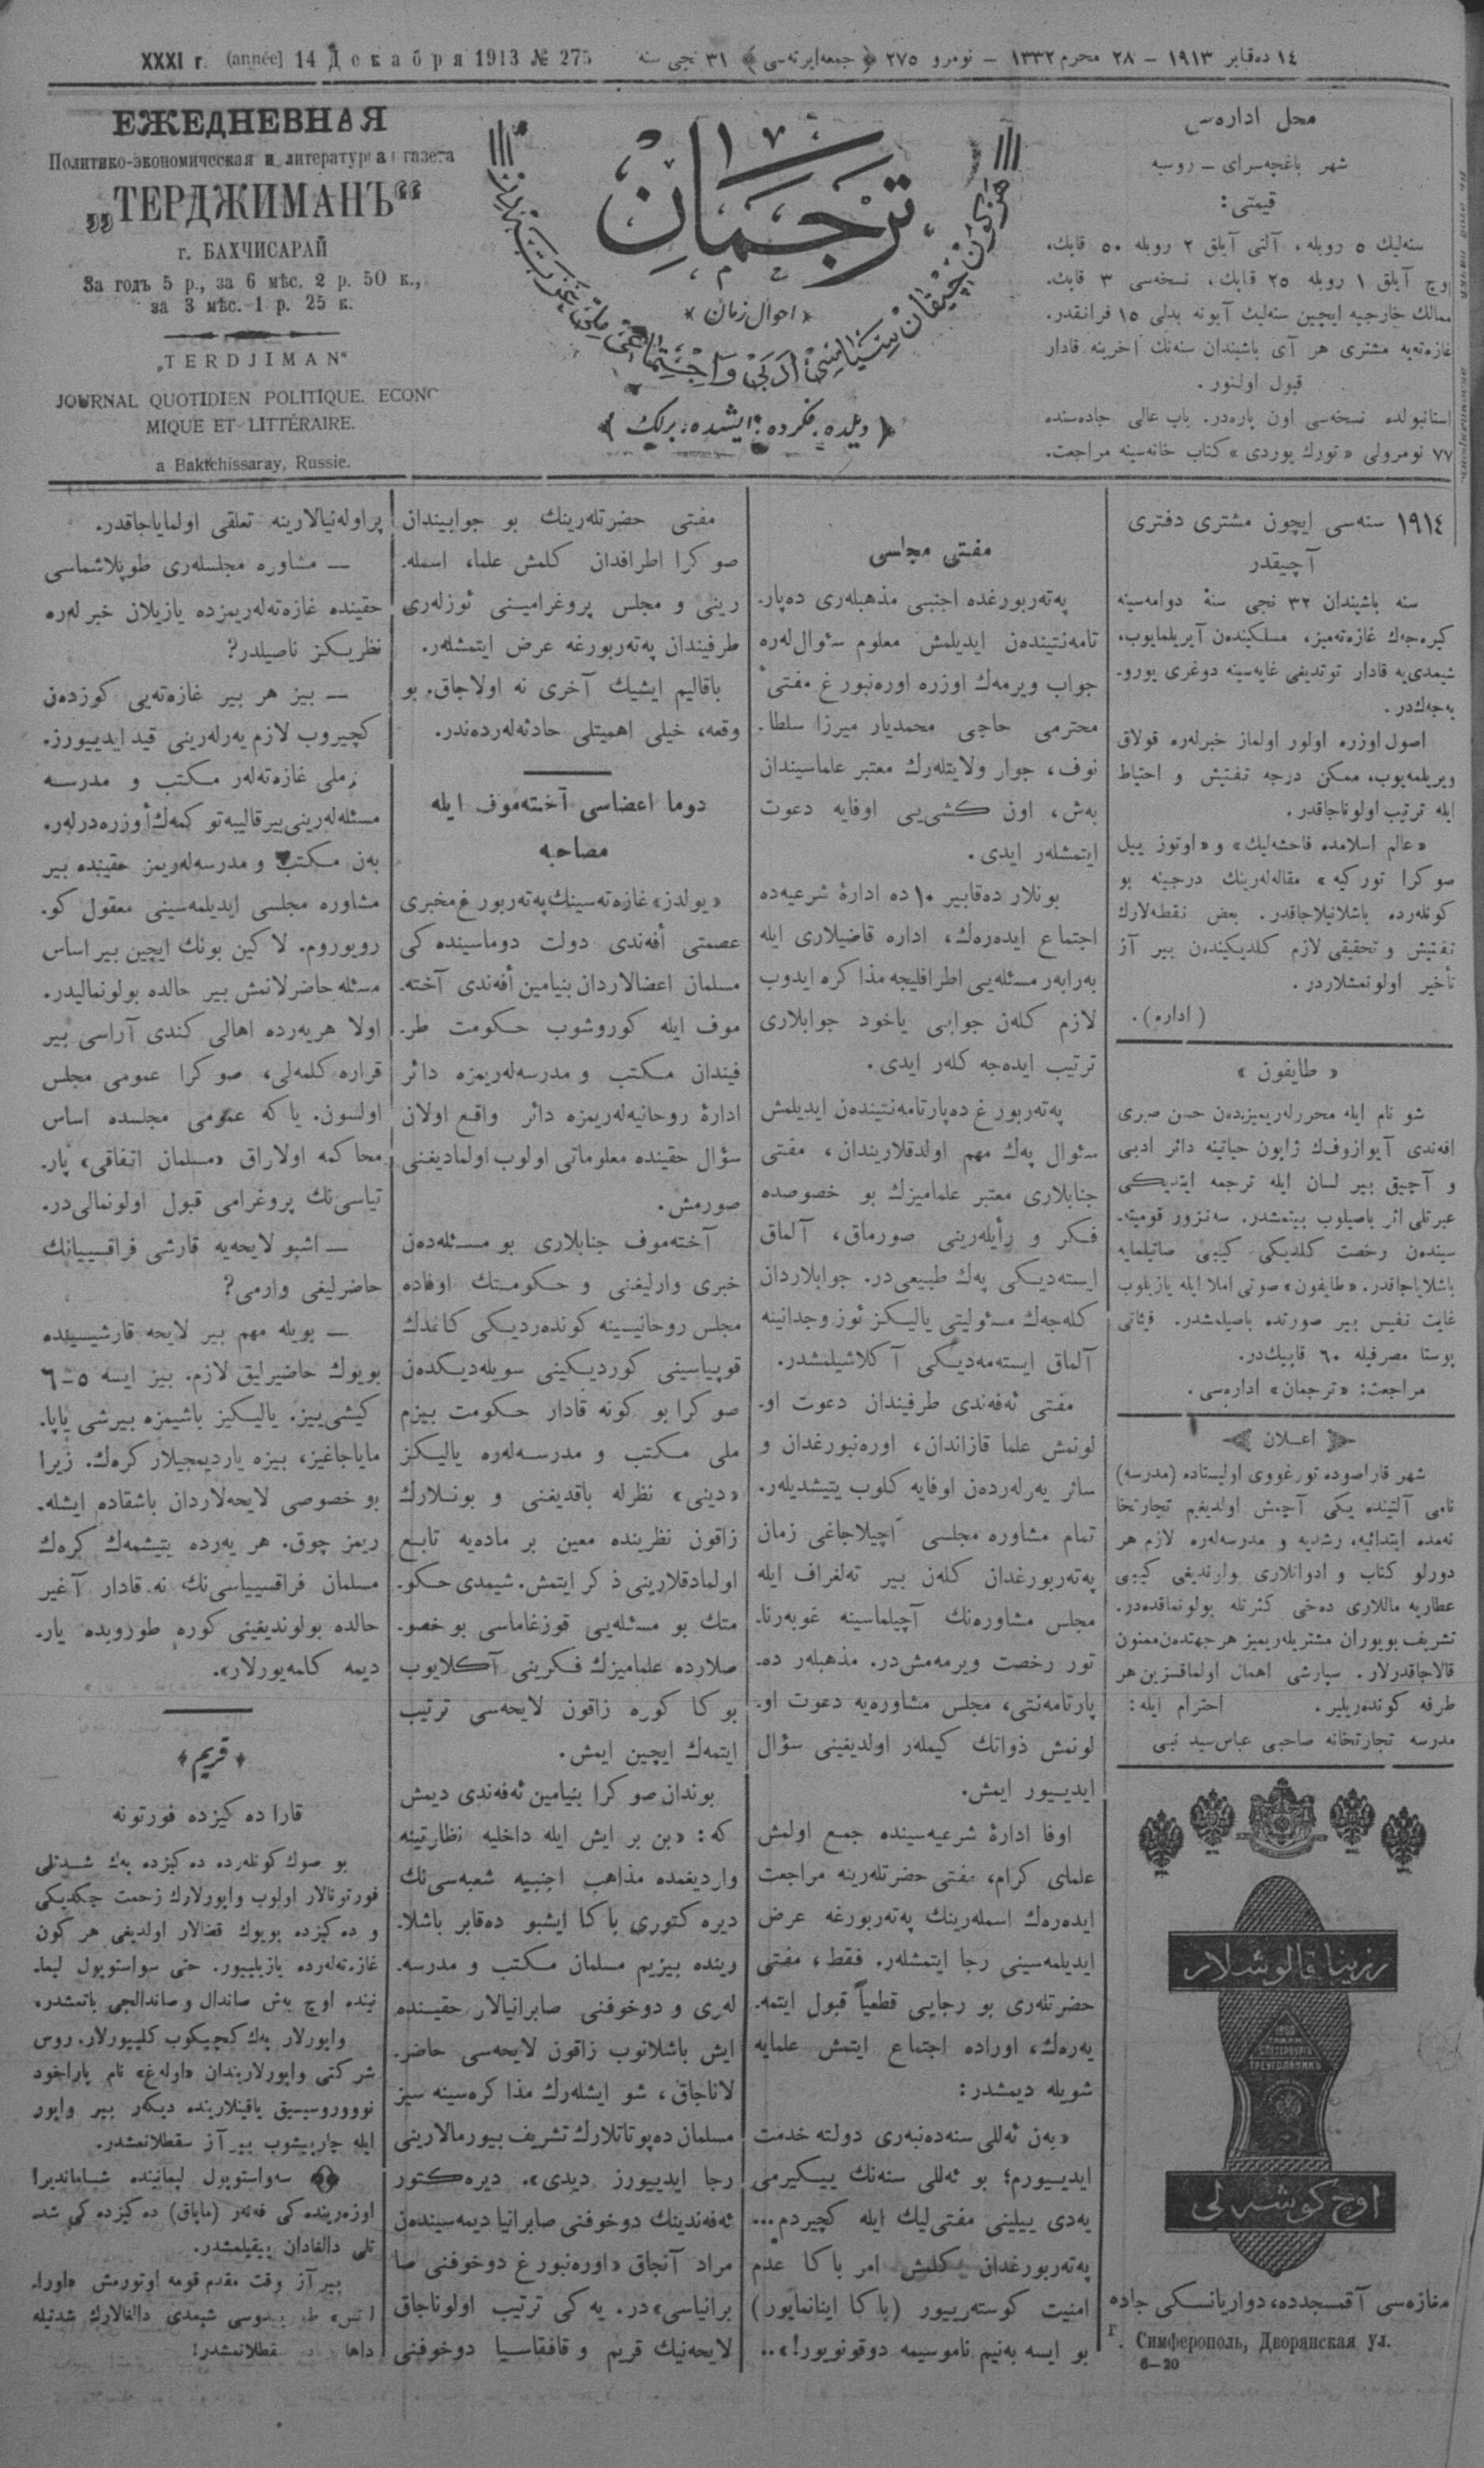 XXXI г. (année) 14 Декабря 1913 № 275
١٤ ده‌قابر ١٩١٣ – ٢٨ محرم ١٣٣٢ – نومرو ٢٧٥ ﴿جمعه‌ایرته‌سی﴾ ٣١ نجی سنه
ЕЖЕДНЕВНАЯ
Политико-экономическая и литературная газета
„ТЕРДЖИМАНЪ“
г. БАХЧИСАРАЙ
За годъ 5 р., за 6 мѣс. 2 р. 50 к.,
за 3 мѣс. 1 р. 25 к.
„TERDJIMAN“
JOURNAL QUOTIDIEN POLITIQUE. ECONO
MIQUE ET LITTÉRAIRE.
a Baktchissaray, Russie.
ترجمان
﴿احوال زمان﴾
﴿دیلده، فکرده، ایشده، برلك﴾
محل اداره‌سی
شهر باغچه‌سرای – روسیه
قیمتی:
سنه‌لیك ٥ روبله، آلتی آیلق ٢ روبله ٥٠ قاپك،
اوچ آیلق ١ روبله ٢٥ قاپك، نسخه‌سی ٣ قاپك.
ممالك خارجیه ایچین سنه‌لیك آبونه بدلی ١٥ فرانقدر.
غازه‌ته‌یه مشتری هر آی باشیندان سنه‌نك آخرینه قادار
قبول اولنور.
استانبولده نسخه‌سی اون پاره‌در. باب عالی جاده‌سنده
٧٧ نومرولی «تورك یوردی» کتاب خانه‌سینه مراجعت.
١٩١٤ سنه‌سی ایچون مشتری دفتری
آچیقدر
سنه باشیندان ٣٢ نجی سنۀ دوامه‌سینه
کیره‌جك غازه‌ته‌میز، مسلکیندن آیریلمایوب،
شیمدی‌یه قادار توتدیغی غایه‌سینه دوغری یورو-
یه‌جه‌كدر.
اصول اوزره اولور اولماز خبرلەره قولاق
ویریلمه‌یوب، ممکن درجه تفتیش و احتیاط
ایله ترتیب اولوناجاقدر.
«عالم اسلامده فاحشه‌لیك» و «اوتوز ییل
صوکرا تورکیه» مقاله‌لەرینك درجینه بو
کونلەرده باشلانیلاجاقدر. بعض نقطه‌لارك
تفتیش و تحقیقی لازم کلدیکیندن بیر آز
تأخیر اولونمشلاردر.
(اداره).
«طایفون»
شو نام ایله محررلەریمیزدن حسن صبری
افندی آیوازوفك ژاپون حیاتینه دائر ادبی
و آچیق بیر لسان ایله ترجمه ایتدیکی
عبرتلی اثر باصیلوب بیتمشدر. سه‌نزور قومیته-
سیندن رخصت کلدیکی کیبی صاتیلمایه
باشلایاجاقدر. «طایفون» صوتی املا ایله یازیلوب
غایت نفیس بیر صورتده باصیلمشدر. فیئاتی
پوستا مصرفیله ٦٠ قاپیك‌در.
مراجعت: «ترجمان» اداره‌سی.
اعلان
شهر قاراصوده تورغووی اولیستاده (مدرسه)
نامی آلتینده یکی آچمش اولدیغیم تجارتخا
نه‌مده ابتدائیه، رشدیه و مدرسه‌لەره لازم هر
دورلو کتاب و ادواتلاری بولوندیغی کیبی
عطاریه ماللاری دەخی کثرتله بولونماقده‌در.
تشریف بویوران مشتریلەریمیز هر جهتدن ممنون
قالاجاقدرلار. سپارشی اهمال اولماقسزین هر
طرفه کوندەریلیر. احترام ایله:
مدرسه تجارتخانه صاحبی عباس سید نبی
رزینا قالوشلار
1860
С.ПЕТЕРБУРГЪ
ТРЕУГОЛЬНИКЪ
اوچ کوشه لی
مغازه‌سی آقمسجدده، دواریانسکی جاده
г. Симферополь, Дворянская ул.
6—20
مفتی مجلسی
په‌ته‌ربورغده اجنبی مذهبلەری دەپار-
تامه‌نتیندن ایدیلمش معلوم سئوال‌لەره
جواب ویرمه‌ك اوزره اورەنبورغ مفتیٔ
محترمی حاجی محمدیار میرزا سلطا-
نوف، جوار ولایتلەرك معتبر علماسیندان
به‌ش، اون کشی‌یی اوفایه دعوت
ایتمشلەر ایدی.
بونلار دەقابیر ١٠ ده ادارۀ شرعیه‌ده
اجتماع ایدەرەك، اداره قاضیلاری ایله
بەرابەر مسئله‌یی اطرافلیجه مذاکره ایدوب
لازم کلەن جوابی یاخود جوابلاری
ترتیب ایدەجه کلەر ایدی.
په‌ته‌ربورغ دەپارتامه‌نتیندن ایدیلمش
سئوال په‌ك مهم اولدقلاریندان، مفتی
جنابلاری معتبر علمامیزك بو خصوصده
فکر و رأیلەرینی صورماق، آلماق
ایسته‌دیکی په‌ك طبیعی‌در. جوابلاردان
کله‌جه‌ك مسئولیتی یالیکز ئوز وجدانینه
آلماق ایسته‌مه‌دیکی آکلاشیلمشدر.
مفتی ئەفەندی طرفیندان دعوت او-
لونمش علما قازاندان، اورەنبورغدان و
سائر یەرلەردن اوفایه کلوب یتیشدیلەر.
تمام مشاوره مجلسی آچیلاجاغی زمان
په‌ته‌ربورغدان کلەن بیر تەلغراف ایله
مجلس مشاورەنك آچیلماسینه غوبەرنا-
تور رخصت ویرمه‌مش‌در. مذهبلەر دە-
پارتامه‌نتی، مجلس مشاوره‌یه دعوت او-
لونمش ذواتك کیملەر اولدیغینی سؤال
ایدیـیور ایمش.
اوفا ادارۀ شرعیه‌سینده جمع اولمش
علمای کرام، مفتی حضرتلەرینه مراجعت
ایدەرەك اسملەرینك په‌ته‌ربورغه عرض
ایدیلمه‌سینی رجا ایتمشلەر. فقط، مفتی
حضرتلەری بو رجایی قطعیاً قبول ایتمه-
یەرەك، اوراده اجتماع ایتمش علمایه
شویله دیمشدر:
«بەن ئەللی سنەدەنبەری دولته خدمت
ایدیـیورم؛ بو ئەللی سنەنك ییکیرمی
یەدی ییلینی مفتی‌لیك ایله کچیردم...
په‌ته‌ربورغدان کلمش امر باکا عدم
امنیت کوستەرییور (باکا اینانمایور)
بو ایسه بەنیم ناموسیمه دوقونویور!»..
مفتی حضرتلەرینك بو جوابیندان
صوکرا اطرافدان کلمش علما، اسملە-
رینی و مجلس پروغرامینی ئوزلەری
طرفیندان په‌ته‌ربورغه عرض ایتمشلەر.
باقالیم ایشیك آخری نه اولاجاق، بو
وقعه، خیلی اهمیتلی حادثه‌لەردەندر.
دوما اعضاسی آخته‌موف ایله
مصاحبه
«یولدز» غازه‌ته‌سینك په‌ته‌ربورغ مخبری
عصمتی أفەندی دولت دوماسینده کی
مسلمان اعضالاردان بنیامین أفەندی آخته-
موف ایله کوروشوب حکومت طر-
فیندان مکتب و مدرسه‌لەریمزه دائر
ادارۀ روحانیه‌لەریمزه دائر واقع اولان
سؤال حقینده معلوماتی اولوب اولمادیغنی
صورمش.
آخته‌موف جنابلاری بو مسئله‌دن
خبری وارلیغنی و حکومتك اوفاده
مجلس روحانیـسینه کوندەردیکی کاغدك
قوپیاسینی کوردیکینی سویله‌دیکدەن
صوکرا بو کونه قادار حکومت بیزم
ملی مکتب و مدرسه‌لەره یالیکز
«دینی» نظرله باقدیغنی و بونـلارك
زاقون نظرینده معین بر ماده‌یه تابع
اولمادقلارینی ذکر ایتمش. شیمدی حکو-
متك بو مسئله‌یی قوزغاماسی بو خصو-
صلارده علمامیزك فکرینی آکلایوب
بوکا کوره زاقون لایحه‌سی ترتیب
ایتمه‌ك ایچین ایمش.
بوندان صوکرا بنیامین ئەفەندی دیمش
که: «بن بر ایش ایله داخلیه نظارتینه
واردیغمده مذاهب اجنبیه شعبه‌سی‌نك
دیره‌کتوری باکا ایشبو دەقابر باشلا-
رینده بیزیم مسلمان مکتب و مدرسه-
لەری و دوخوفنی صابرانیالار حقینده
ایش باشلانوب زاقون لایحه‌سی حاضر-
لاناجاق، شو ایشلەرك مذاکره‌سینه سیز
مسلمان دەپوتاتلارك تشریف بیورمالارینی
رجا ایدییورز دیدی». دیره‌کتور
ئەفەندینك دوخوفنی صابرانیا دیمه‌سیندەن
مراد آنجاق «اورەنبورغ دوخوفنی صا
برانیاسی»در. یه کی ترتیب اولوناجاق
لایحه‌نیك قریم و قافقاسیا دوخوفنی
پراوله‌نیالارینه تعلقی اولمایاجاقدر.
— مشاوره مجلسلەری طوپلاشماسی
حقینده غازه‌ته‌لەریمزده یازیلان خبرلەره
نظریکز ناصیلدر؟
— بیز هر بیر غازه‌ته‌یی کوزدەن
کچیروب لازم یەرلەرینی قید ایدییورز.
ملی غازه‌ته‌لەر مکتب و مدرسه
مسئله‌لەرینی بیر قالیبه توکمه‌ك أوزره‌درلەر.
بەن مکتب و مدرسه‌لەریمز حقینده بیر
مشاوره مجلسی ایدیلمه‌سینی معقول کو-
رویوروم. لاکین بونك ایچین بیر اساس
مسئله حاضرلانمش بیر حالده بولونمالیدر.
اولا هر یەرده اهالی کندی آراسی بیر
قراره کلمه‌لی، صوکرا عمومی مجلس
اولسون. یاکه عمومی مجلسده اساس
محاکمه اولاراق «مسلمان اتفاقی» پار-
تیاسی‌نك پروغرامی قبول اولونمالی‌در.
— اشبو لایحه‌یه قارشی فراقسییانك
حاضرلیغی وارمی؟
— بویله مهم بیر لایحه قارشیسینده
بویوك حاضیرلیق لازم. بیز ایسه ٥–٦
کیشی‌ییز. یالیکیز باشیمزه بیرشی یاپا-
مایاجاغیز، بیزه یاردیمجیلار کرەك. زیرا
بو خصوصی لایحه‌لاردان باشقاده ایشلە-
ریمز چوق. هر یەرده یتیشمه‌ك کرەك
مسلمان فراقسییاسی‌نك نه قادار آغیر
حالده بولوندیغینی کوره طوروبده یار-
دیمه کلمه‌یورلار».
﴿قریم﴾
قارا ده کیزده فورتونه
بو صوك کونلەرده ده کیزده په‌ك شدتلی
فورتونالار اولوب واپورلارك زحمت چکدیکی
و ده کیزده بویوك قضالار اولدیغی هر کون
غازه‌ته‌لەرده یازیلییور. حتی سواستوپول لیما-
نینده اوچ به‌ش صاندال و صاندالجی باتمشدر.
واپورلار په‌ك کچیکوب کلییورلار. روس
شرکتی واپورلاریندان «اولەغ» نام پاراخود
نوووروسیسق یاقینلارینده دیکەر بیر واپور
ایله چارپیشوب بیر آز سقطلانمشدر.
سه‌واستوپول لیمانینده شاماندیرا
اوزەرینده کی فەنەر (مایاق) ده کیزده کی شد-
تلی دالغادان ییقیلمشدر.
بیر آز وقت مقدم قومه اوتورمش
شیمدی دالغالارك شدتیله
داها سقطلانمشدر!